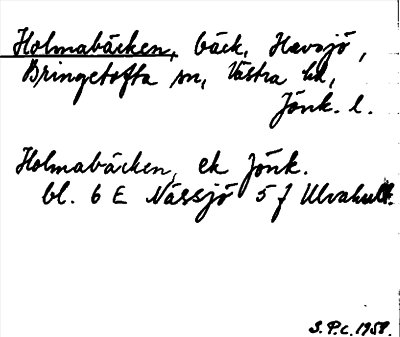 Holmabäcken, bäck, Havsjö,
Bringetofta sn, Västra hd,
Jönk. l.
Holmabäcken, ek Jönk.
bl. 6 E Nässjö 5 f Ulvahult.
S.P.c. 1958.